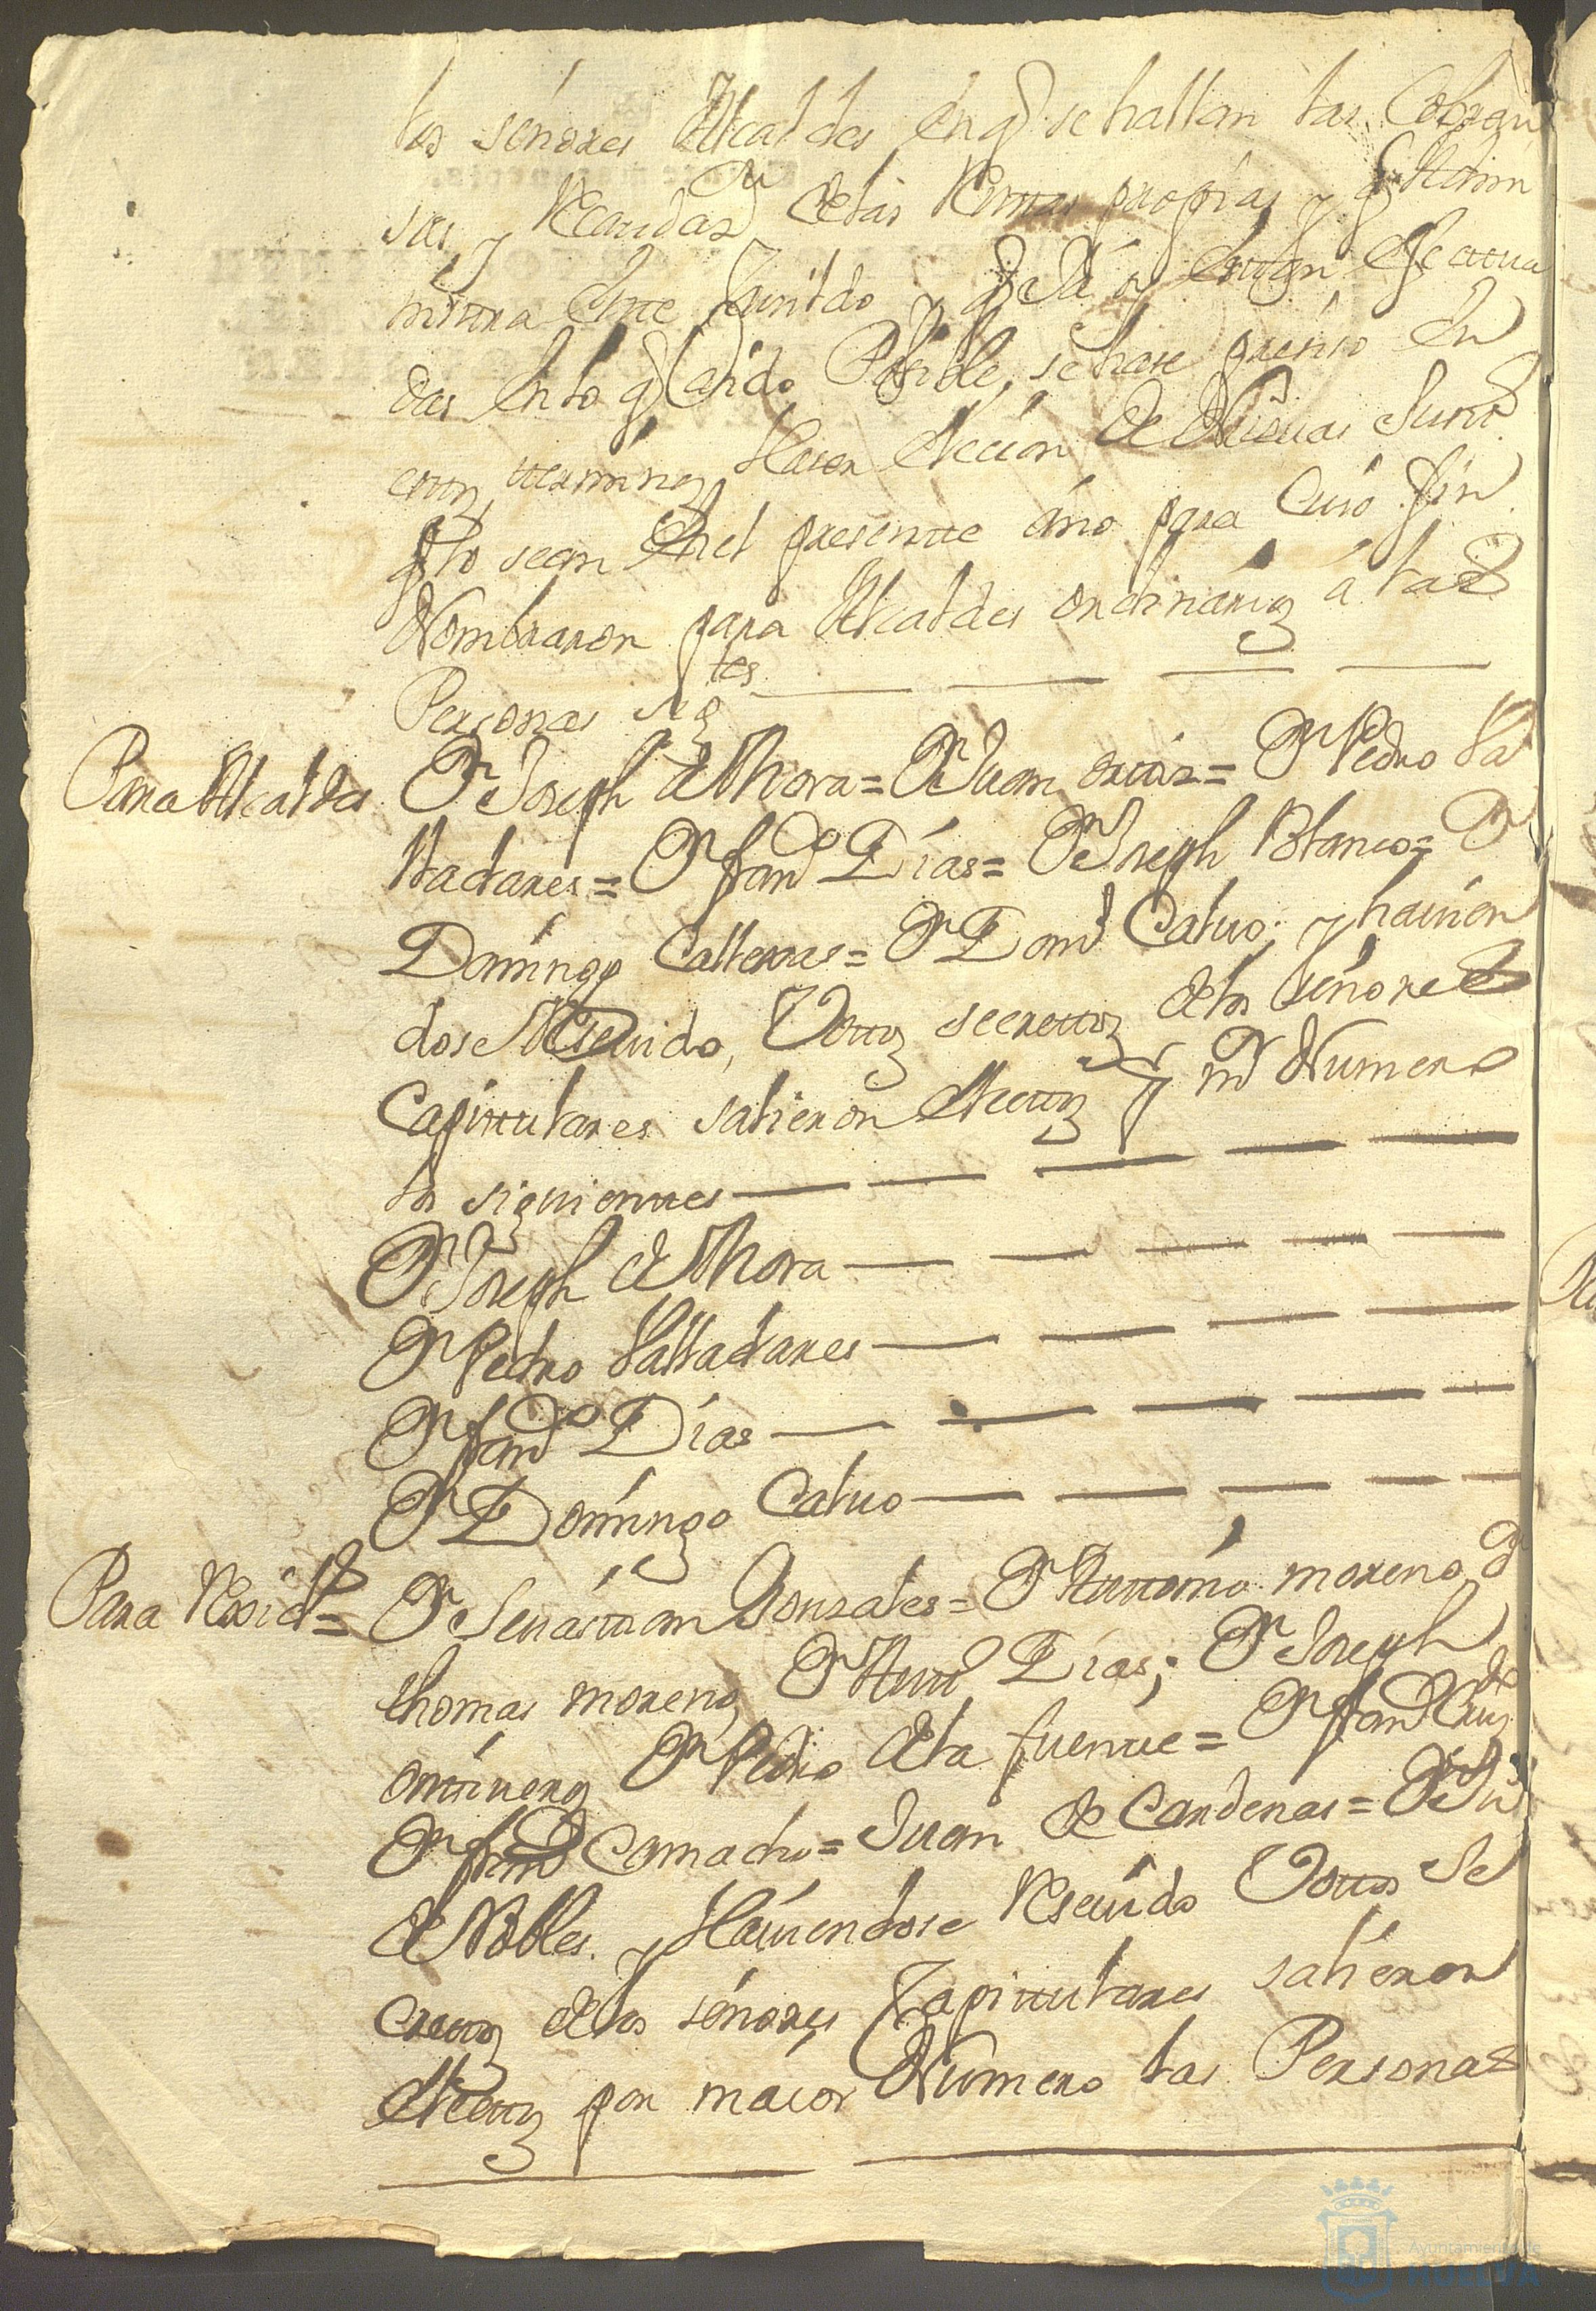 los señores Alcaldes en q se hallan las Cobran
sas, y Recaudaz.n de las Rentas propias, y q Admi
nistra este Cavildo, y q de el esttan efectua
das en lo q a sido Posible, se hase presiso en
ettos terminos Haser eleccion de Nuevas Justt.s
q lo sean en el presentte año para Cuio fin
Nombraron para Alcaldes ordinarios a las
Personas sig.tes
Para Alcaldes D.n Joseph de Mora = D.n Juan orttiz = D.n Pedro Va
lladares = D.n fran.co Dias = D.n Joseph Blanco = D.n
Domingo Callexas = D.n Dom.o Calvo; y havien
dose Resevido, Votos secrettos de los señores
Capittulares salieron electtos p.r m.r Numero
los siguienttes
D.n Joseph de Mora
D.n Pedro Valladares
D.n fran.co Dias
D.n Domingo Calvo
Para Rexid.s = D.n Sevasttian Gonzales = D.n Anttonio moreno D.n
thomas moreno, D.n Antt.o Dias; D.n Joseph
onttiveros D.n Pedro de la fuentte = D.n fran.co Cruz
D.n fran.co Camacho = Juan de Cardenas = D.n Ju.n
de Robles. y Haviendose Resevido Vottos Se
crettos de los señores Capittulares salieron
electtos por maior Numero las Personas
Ayuntamiento de
HUELVA